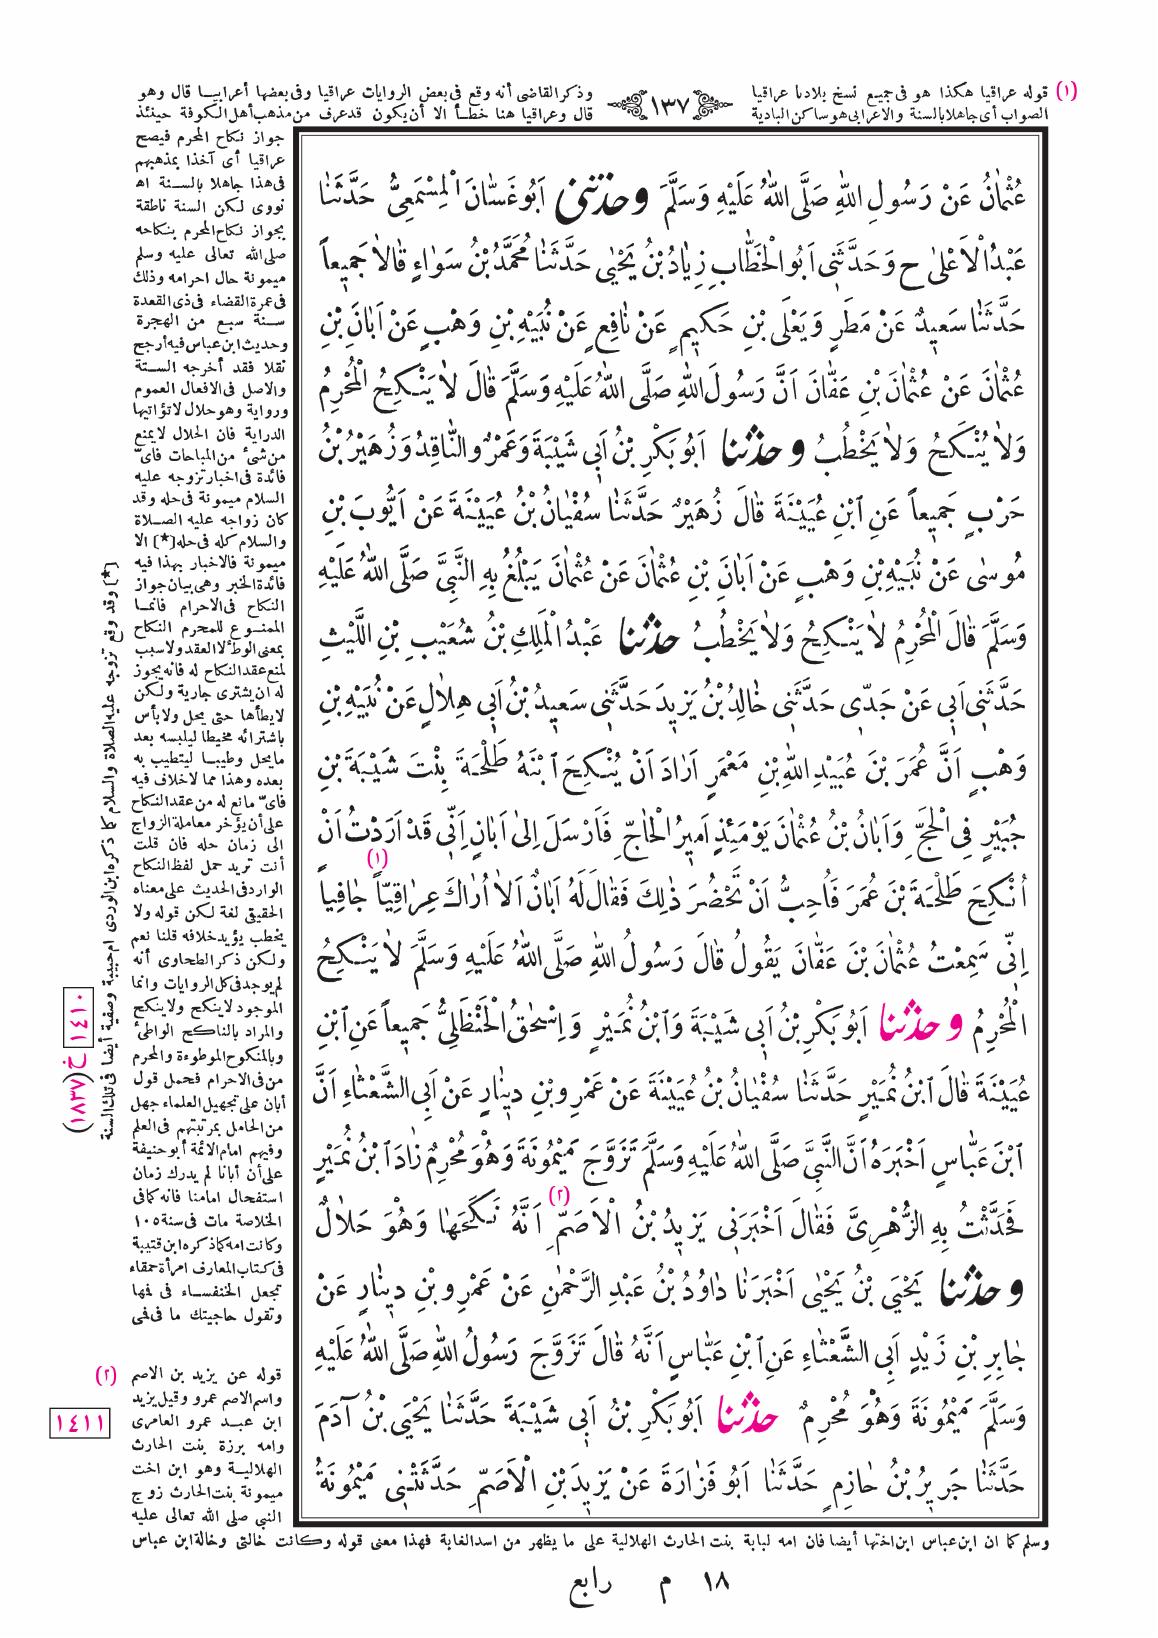 (١) قوله عراقيا هكذا هو فى جميع نسخ بلادنا عراقيا
الصواب أى جاهلا بالسنة والاعرابى هو ساكن البادية
﴿١٣٧﴾
وذكر القاضى أنه وقع فى بعض الروايات عراقيا وفى بعضها أعرابيـا قال وهو
قال وعراقيا هنا خطـأ الا أن يكون قد عرف من مذهب أهل الكوفة حينئذ
عُثْمَانُ عَنْ رَسُولِ اللهِ صَلَّى اللهُ عَلَيْهِ وَسَلَّمَ وحدثنى اَبُو غَسَّانَ الْمِسْمَعِىُّ حَدَّثَنَا
عَبْدُ الْاَعْلىٰ ح وَحَدَّثَنِى اَبُو الْخَطَّابِ زِيَادُ بْنُ يَحْيٰى حَدَّثَنَا مُحَمَّدُ بْنُ سَوَاءٍ قَالاَ جَمِيعاً
حَدَّثَنَا سَعِيدٌ عَنْ مَطَرٍ وَيَعْلَى بْنِ حَكِيمٍ عَنْ نَافِعٍ عَنْ نُبَيْهِ بْنِ وَهْبٍ عَنْ اَبَانَ بْنِ
عُثْمَانَ عَنْ عُثْمَانَ بْنِ عَفَّانَ اَنَّ رَسُولَ اللهِ صَلَّى اللهُ عَلَيْهِ وَسَلَّمَ قَالَ لاَ يَنْكِحُ الْمُحْرِمُ
وَلاَ يُنْكَحُ وَلاَ يَخْطُبُ وحدثنا اَبُو بَكْرِ بْنُ اَبِى شَيْبَةَ وَعَمْرٌو النَّاقِدُ وَزُهَيْرُ بْنُ
حَرْبٍ جَمِيعاً عَنِ ابْنِ عُيَيْنَةَ قَالَ زُهَيْرٌ حَدَّثَنَا سُفْيَانُ بْنُ عُيَيْنَةَ عَنْ اَيُّوبَ بْنِ
مُوسٰى عَنْ نُبَيْهِ بْنِ وَهْبٍ عَنْ اَبَانَ بْنِ عُثْمَانَ عَنْ عُثْمَانَ يَبْلُغُ بِهِ النَّبِىَّ صَلَّى اللهُ عَلَيْهِ
وَسَلَّمَ قَالَ الْمُحْرِمُ لاَ يَنْكِحُ وَلاَ يَخْطُبُ حدثنا عَبْدُ الْمَلِكِ بْنُ شُعَيْبِ بْنِ اللَّيْثِ
حَدَّثَنِى اَبِى عَنْ جَدِّى حَدَّثَنِى خَالِدُ بْنُ يَزِيدَ حَدَّثَنِى سَعِيدُ بْنُ اَبِى هِلاَلٍ عَنْ نُبَيْهِ بْنِ
وَهْبٍ اَنَّ عُمَرَ بْنَ عُبَيْدِ اللهِ بْنِ مَعْمَرٍ اَرَادَ اَنْ يُنْكِحَ ابْنَهُ طَلْحَةَ بِنْتَ شَيْبَةَ بْنِ
جُبَيْرٍ فِى الْحَجِّ وَاَبَانُ بْنُ عُثْمَانَ يَوْمَئِذٍ اَمِيرُ الْحَاجِّ فَاَرْسَلَ اِلىٰ اَبَانٍ اِنِّى قَدْ اَرَدْتُ اَنْ
اُنْكِحَ طَلْحَةَ بْنَ عُمَرَ فَاُحِبُّ اَنْ تَحْضُرَ ذٰلِكَ فَقَالَ لَهُ اَبَانٌ اَلاَ اُرَاكَ عِرَاقِيّاً (١) جَافِياً
اِنِّى سَمِعْتُ عُثْمَانَ بْنَ عَفَّانَ يَقُولُ قَالَ رَسُولُ اللهِ صَلَّى اللهُ عَلَيْهِ وَسَلَّمَ لاَ يَنْكِحُ
الْمُحْرِمُ وحدثنا اَبُو بَكْرِ بْنُ اَبِى شَيْبَةَ وَابْنُ نُمَيْرٍ وَاِسْحٰقُ الْحَنْظَلِىُّ جَمِيعاً عَنِ ابْنِ
عُيَيْنَةَ قَالَ ابْنُ نُمَيْرٍ حَدَّثَنَا سُفْيَانُ بْنُ عُيَيْنَةَ عَنْ عَمْرِو بْنِ دِينَارٍ عَنْ اَبِى الشَّعْثَاءِ اَنَّ
ابْنَ عَبَّاسٍ اَخْبَرَهُ اَنَّ النَّبِىَّ صَلَّى اللهُ عَلَيْهِ وَسَلَّمَ تَزَوَّجَ مَيْمُونَةَ وَهُوَ مُحْرِمٌ زَادَ ابْنُ نُمَيْرٍ
فَحَدَّثْتُ بِهِ الزُّهْرِىَّ فَقَالَ اَخْبَرَنِى يَزِيدُ بْنُ الْاَصَمِّ (٢) اَنَّهُ نَكَحَهَا وَهُوَ حَلاَلٌ
وحدثنا يَحْيَى بْنُ يَحْيٰى اَخْبَرَنَا دَاوُدُ بْنُ عَبْدِ الرَّحْمٰنِ عَنْ عَمْرِو بْنِ دِينَارٍ عَنْ
جَابِرِ بْنِ زَيْدٍ اَبِى الشَّعْثَاءِ عَنِ ابْنِ عَبَّاسٍ اَنَّهُ قَالَ تَزَوَّجَ رَسُولُ اللهِ صَلَّى اللهُ عَلَيْهِ
وَسَلَّمَ مَيْمُونَةَ وَهُوَ مُحْرِمٌ حدثنا اَبُو بَكْرِ بْنُ اَبِى شَيْبَةَ حَدَّثَنَا يَحْيَى بْنُ آدَمَ
حَدَّثَنَا جَرِيرُ بْنُ حَازِمٍ حَدَّثَنَا اَبُو فَزَارَةَ عَنْ يَزِيدَ بْنِ الْاَصَمِّ حَدَّثَتْنِى مَيْمُونَةُ
جواز نكاح المحرم فيصح
عراقيا أى آخذا بمذهبهم
فى هذا جاهلا بالسـنة اه
نووى لكن السنة ناطقة
بجواز نكاح المحرم بنكاحه
صلى الله تعالى عليه وسلم
ميمونة حال احرامه وذلك
فى عمرة القضاء فى ذى القعدة
سـنة سبع من الهجرة
وحديث ابن عباس فيه أرجح
نقلا فقد أخرجه الستة
والاصل فى الافعال العموم
ورواية وهو حلال لا تؤاتيها
الدراية فان الحلال لا يمنع
من شىء من المباحات فاىّ
فائدة فى اخبار تزوجه عليه
السلام ميمونة فى حله وقد
كان زواجه عليه الصـلاة
والسلام كله فى حله(*) الا
ميمونة فالاخبار بهذا فيه
فائدة الخبر وهى بيان جواز
النكاح فى الاحرام فانمـا
الممنـوع للمحرم النكاح
بمعنى الوطء لا العقد ولا سبب
لمنع عقد النكاح له فانه يجوز
له ان يشترى جارية ولكن
لا يطأها حتى يحل ولا بأس
باشترائه مخيطا ليلبسه بعد
ما يحل وطيبـا ليتطيب به
بعده وهذا مما لا خلاف فيه
فاىّ مانع له من عقد النكاح
على أن يؤخر معاملة الزواج
الى زمان حله فان قلت
أنت تريد حمل لفظ النكاح
الوارد فى الحديث على معناه
الحقيقى لغة لكن قوله ولا
يخطب يؤيد خلافه قلنا نعم
ولكن ذكر الطحاوى أنه
لم يوجد فى كل الروايات وانما
الموجود لا ينكح ولا ينكح
والمراد بالناكح الواطئ
وبالمنكوح الموطوءة والمحرم
من فى الاحرام فحمل قول
أبان على تجهيل العلماء جهل
من الحامل بمرتبتهم فى العلم
وفيهم امام الائمة أبو حنيفة
على أن أبانا لم يدرك زمان
استفحال امامنا فانه كما فى
الخلاصة مات فى سنة ١٠٥
وكانت امه كما ذكره ابن قتيبة
فى كتاب المعارف امرأة حمقاء
تجعل الخنفسـاء فى فمها
وتقول حاجيتك ما فى فمى
(٢) قوله عن يزيد بن الاصم
واسم الاصم عمرو وقيل يزيد
ابن عبـد عمرو العامرى
وامه برزة بنت الحارث
الهلاليـة وهو ابن اخت
ميمونة بنت الحارث زوج
النبى صلى الله تعالى عليه
وسلم كما ان ابن عباس ابن اختها أيضا فان امه لبابة بنت الحارث الهلالية على ما يظهر من اسد الغابة فهذا معنى قوله وكانت خالتى وخالة ابن عباس
(*) وقد وقع تزوجه عليه الصلاة والسلام كما ذكره ابن الوردى ام حبيبة وصفية أيضا فى تلك السنة
١٤١٠ خ(١٨٣٧)
١٤١١
١٨ م رابع